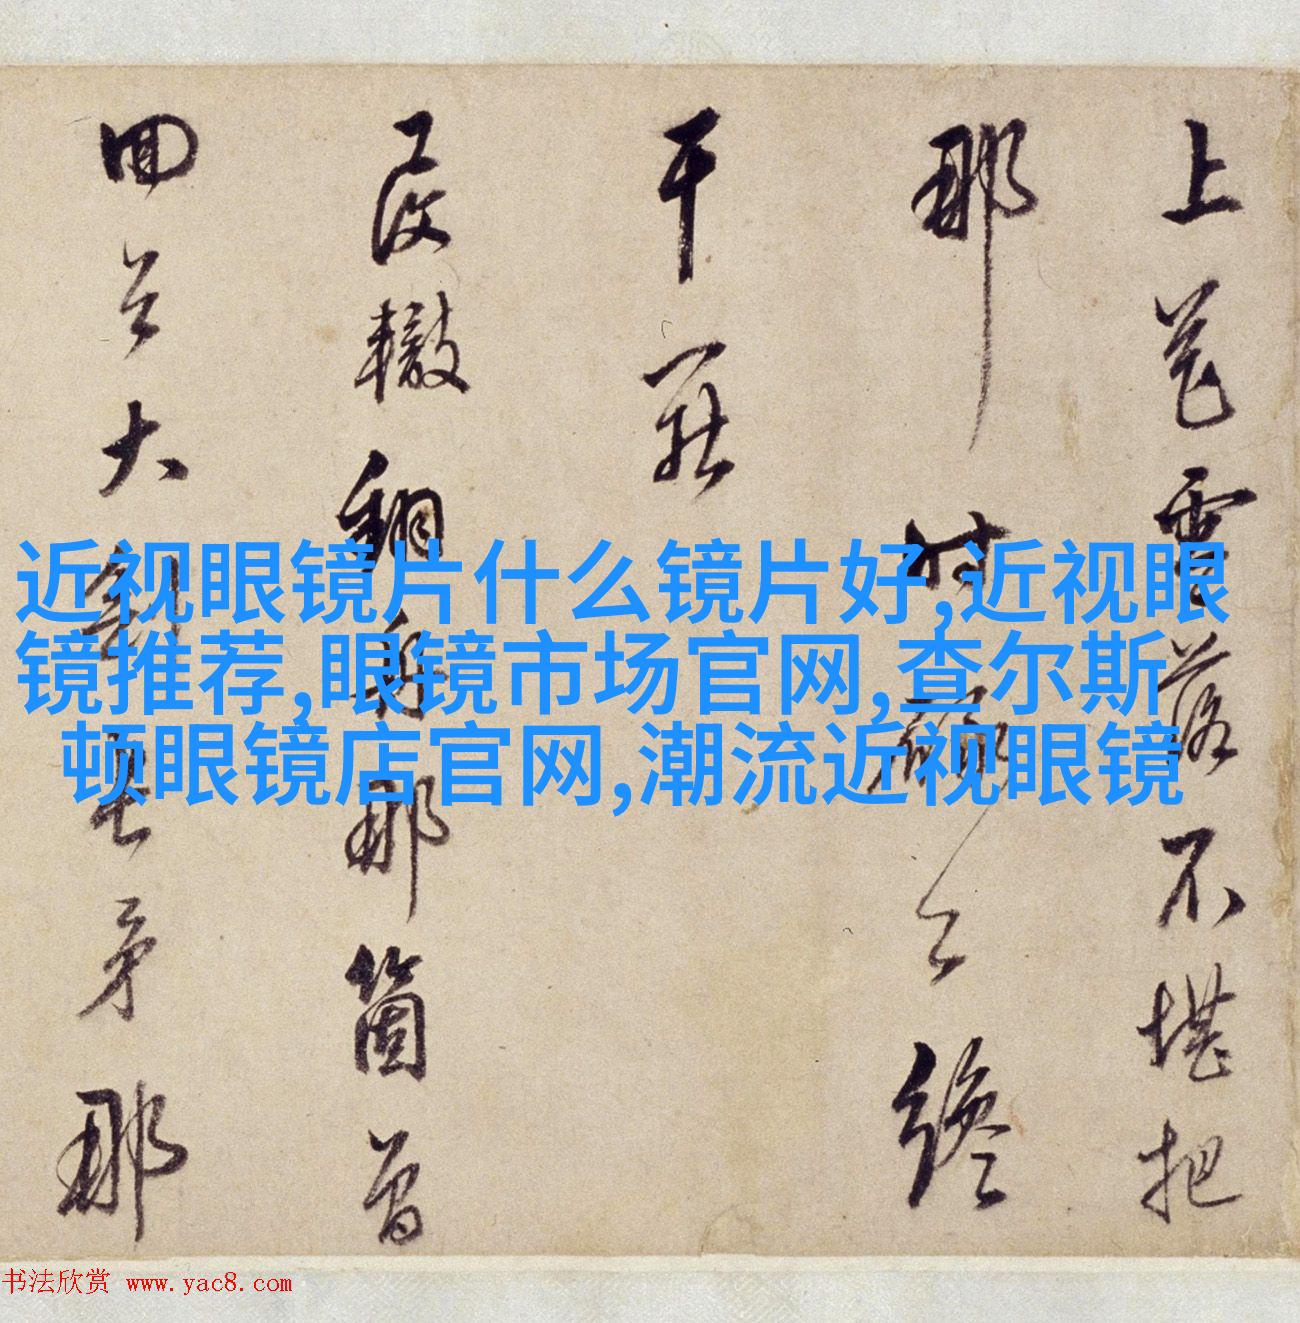 上 落不堪把
那 時 終
干
轍翻 那箇
回 大 矛那
近视眼镜片什么镜片好,近视眼
镜推荐,眼镜市场官网,查尔斯
顿眼镜店官网,潮流近视眼镜
书法欣赏 www.yac8.com